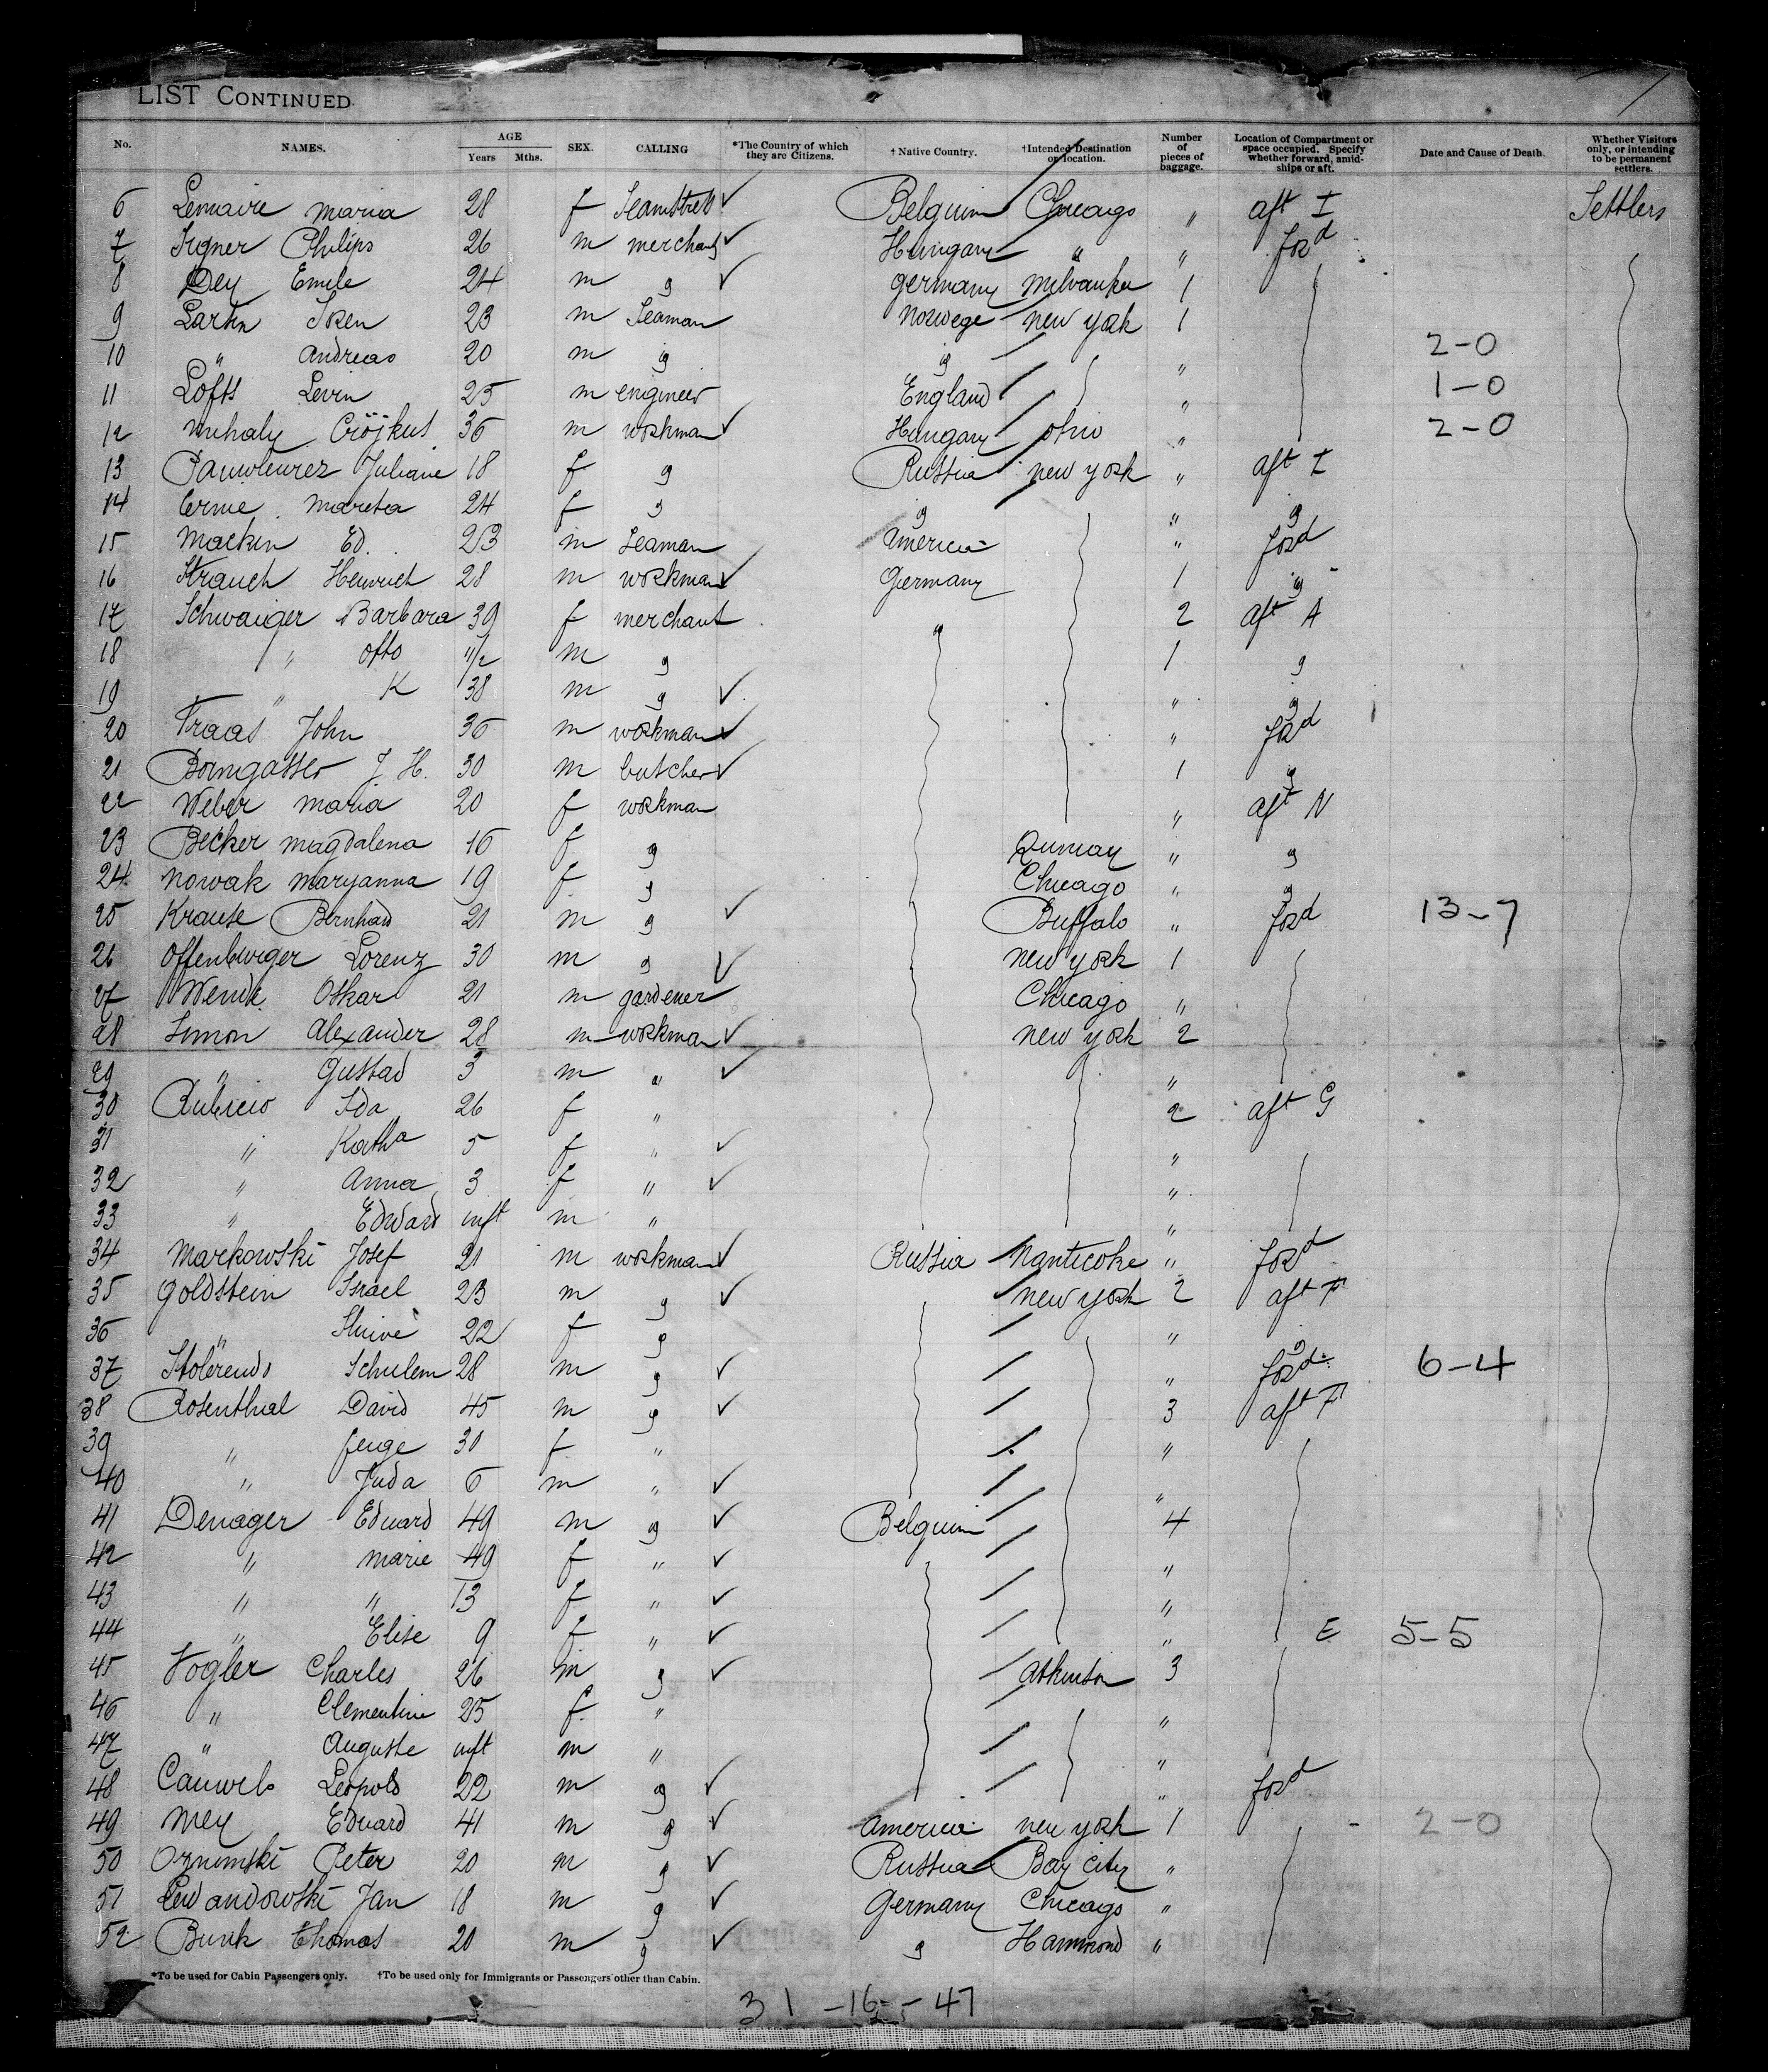 LIST CONTINUED
No. NAMES. AGE Years Mths. SEX. CALLING *The Country of which they are Citizens. †Native Country. †Intended Destination or location. Number of pieces of baggage. Location of Compartment or space occupied. Specify whether forward, amidships or aft. Date and Cause of Death. Whether Visitors only, or intending to be permanent settlers.
6 Lemaire Maria 28 f Seamstress ✓ Belguim Chicago " aft I Settlers
7 Philips 26 m merchant ✓ Hungary " " ford
8 Dey Emile 24 m g ✓ Germany Milvaukee 1
9 Larsen 23 m Seaman Norwege New york 1
10 " Andreas 20 m g g " 2-0
11 Lofts Levin 25 m engineer England " 1-0
12 Mihaly 36 m workman ✓ Hungary Ohio " 2-0
13 Juliane 18 f g Russia New york " aft I
14 Mareta 24 f g g " g
15 Mackin Ed. 23 m Seaman America " ford
16 Strauch Heinrich 28 m workman ✓ Germany 1 g
17 Schwaiger Barbara 39 f merchant g 2 aft A
18 " Otto 11/2 m g 1 g
19 " K 38 m g ✓ " g
20 Fraas John 36 m workman ✓ " ford
21 J H. 30 m butcher ✓ 1 g
22 Weber Maria 20 f workman " aft N
23 Becker Magdalena 16 f g " g
24 Nowak Maryanna 19 f g Chicago " g
25 Krause Bernhard 21 m g ✓ Buffalo " ford 13-7
26 Offenburger Lorenz 30 m g ✓ New york 1
27 Wende Oskar 21 m gardener Chicago "
28 Simon Alexander 28 m workman ✓ New york 2
29 " Gustav 3 m " ✓ "
30 Ida 26 f " 2 aft G
31 " Katha 5 f " ✓ "
32 " Anna 3 f " ✓ "
33 " Edward inft m " "
34 Markowski Josef 21 m workman ✓ Russia Nanticoke " ford
35 Goldstein Israel 23 m g ✓ New york 2 aft F
36 " 22 f g " g
37 Schulem 28 m g ✓ " ford 6-4
38 Rosenthal David 45 m g ✓ 3 aft F
39 " Feige 30 f " "
40 " Juda 6 m " ✓ "
41 Denager Eduard 49 m g ✓ Belguim 4
42 " Marie 49 f " ✓ "
43 " " 13 f " ✓ "
44 " Elise 9 f " ✓ " E 5-5
45 Vogler Charles 26 m g ✓ Atkinson 3
46 " Clementine 25 f " "
47 " Auguste inft m " "
48 Cauwels Leopold 22 m g ✓ " ford
49 Mey Eduard 41 m g ✓ America New york 1 2-0
50 Peter 20 m g ✓ Russia Bay City "
51 Lewandowski Jan 18 m g ✓ Germany Chicago "
52 Bunk Thomas 20 m g ✓ g Hammond "
*To be used for Cabin Passengers only. †To be used only for Immigrants or Passengers other than Cabin.
31 -16- 47